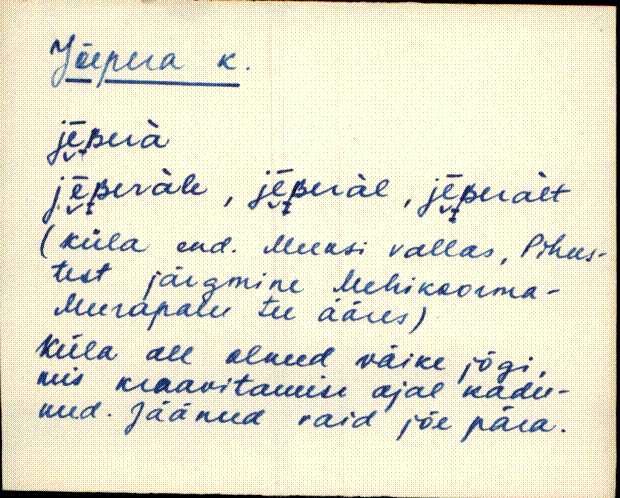 Jõepera k.
jē̬perà
jē̬peràle, jē̬peràl, jē̬peràlt
(küla end. Meeksi vallas, Pihus-
test järgmine Mehikoorma-
Meerapalu tee ääres)
Küla all olnud väike jõgi,
mis kraavitamise ajal kadu-
nud. Jäänud vaid jõe pära.